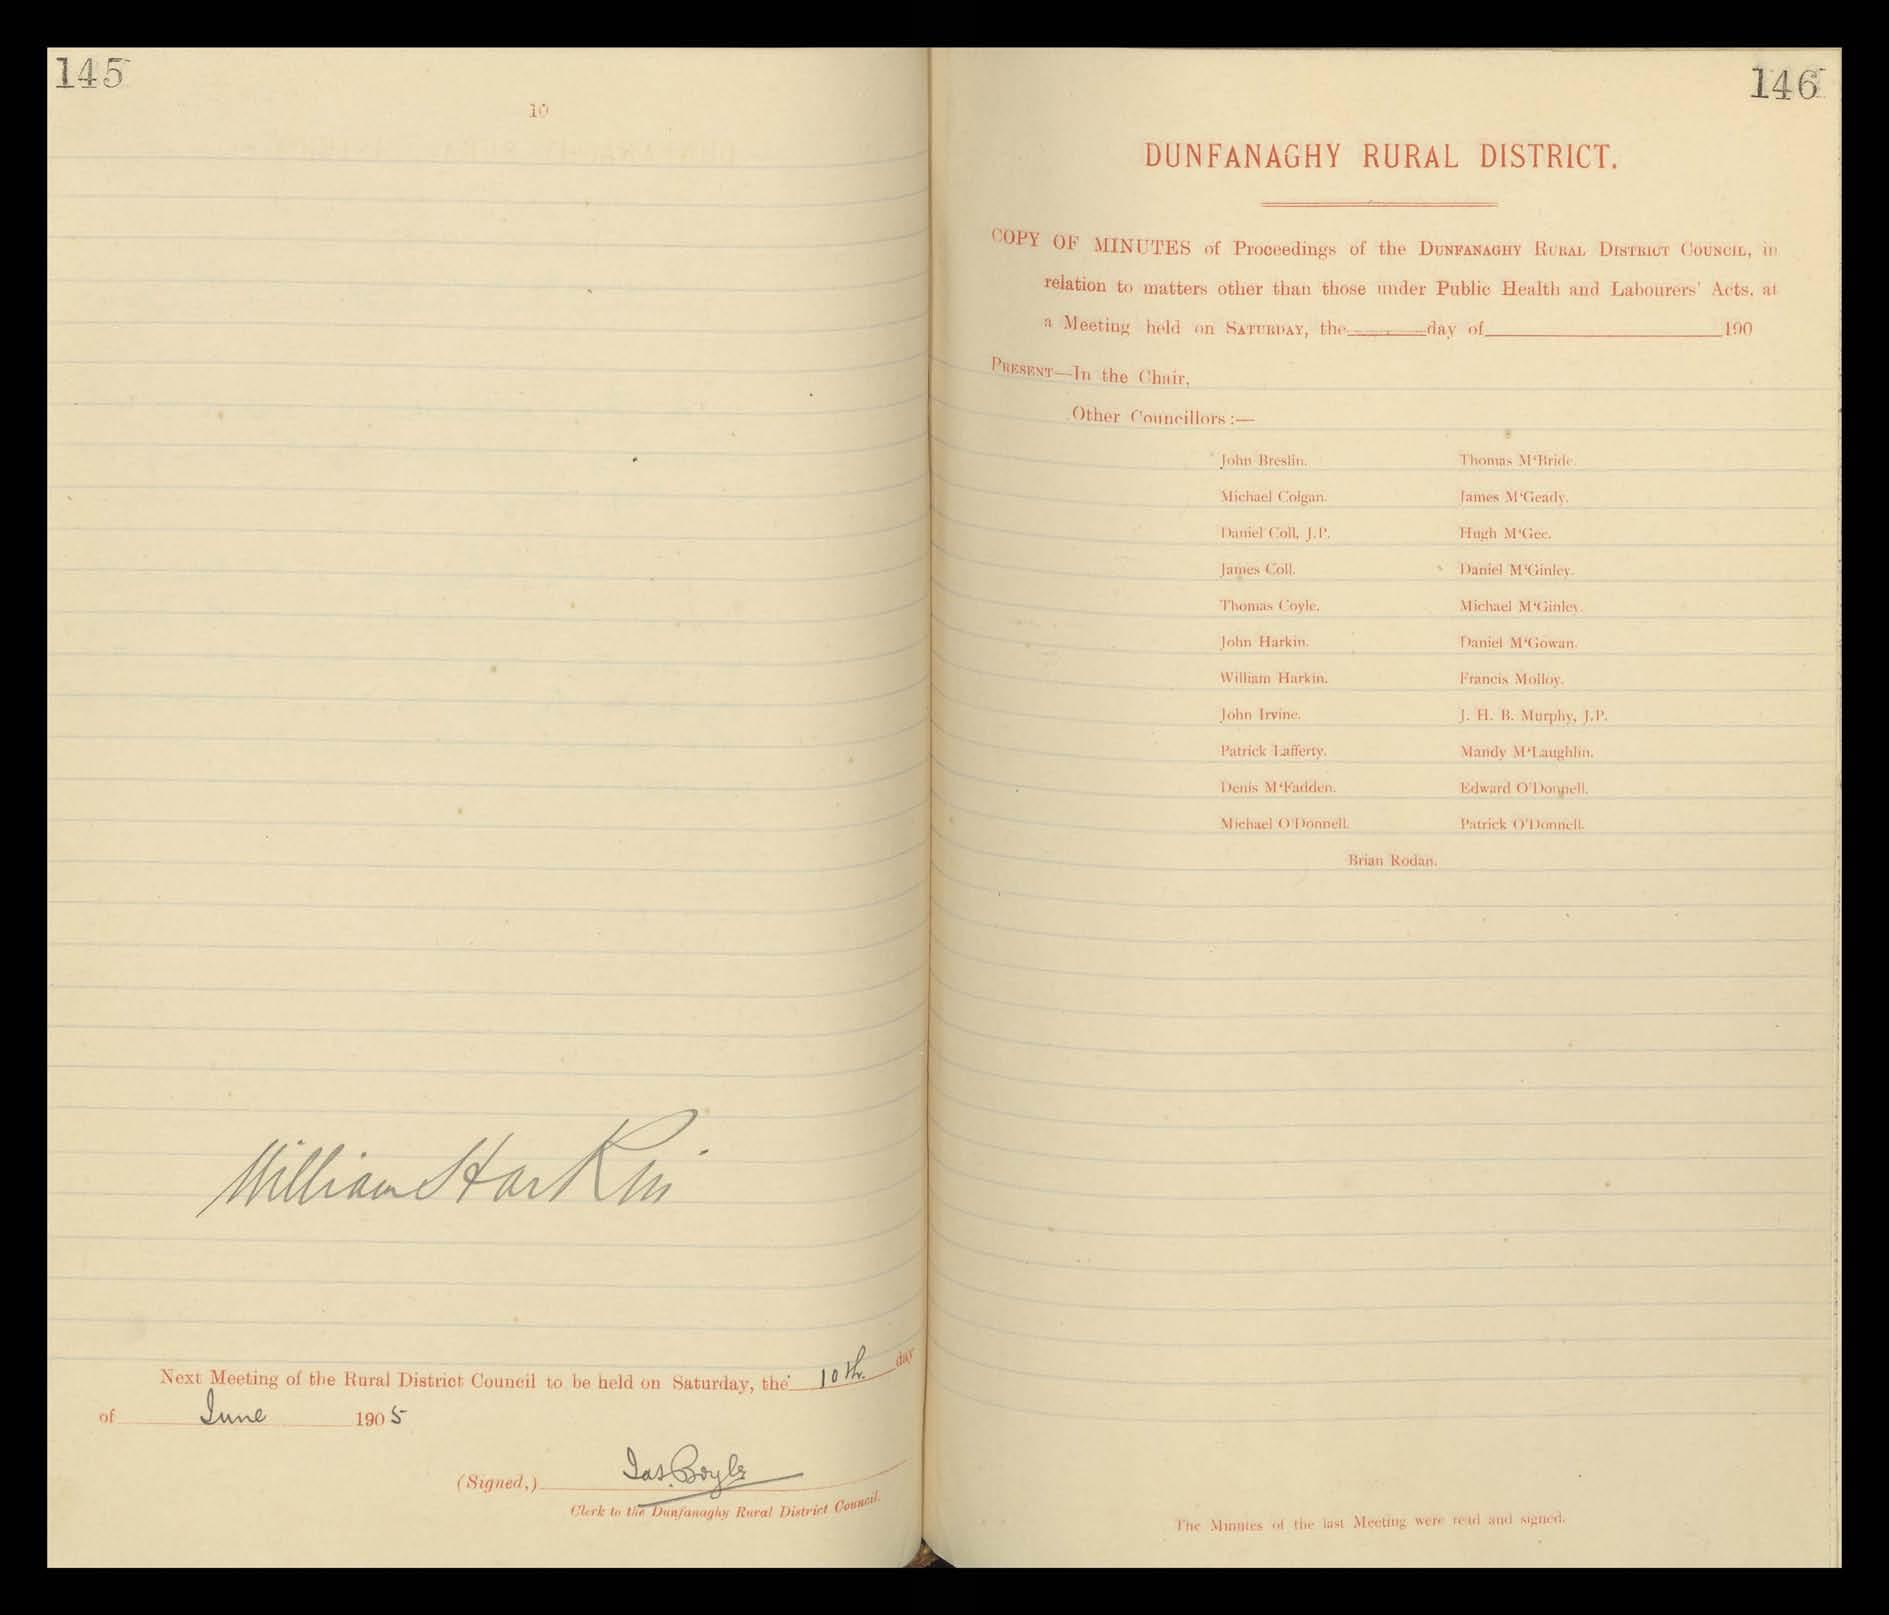 145
10
William Harkin
Next Meeting of the Rural District Council to be held on Saturday, the 10th. day
of June 1905
(Signed,) Jas. Boyle
Clerk to the Dunfanaghy Rural District Council.
146
DUNFANAGHY RURAL DISTRICT.
COPY OF MINUTES of Proceedings of the DUNFANAGHY RURAL DISTRICT COUNCIL, in
relation to matters other than those under Public Health and Labourers' Acts, at
a Meeting held on SATURDAY, the day of 190
PRESENT—In the Chair,
Other Councillors:—
John Breslin. Thomas M‘Bride.
Michael Colgan. James M‘Geady.
Daniel Coll, J.P. Hugh M‘Gee.
James Coll. Daniel M‘Ginley.
Thomas Coyle. Michael M‘Ginley.
John Harkin. Daniel M‘Gowan.
William Harkin. Francis Molloy.
John Irvine. J. H. B. Murphy, J.P.
Patrick Lafferty. Mandy M‘Laughlin.
Denis M‘Fadden. Edward O'Donnell.
Michael O'Donnell. Patrick O'Donnell.
Brian Rodan.
The Minutes of the last Meeting were read and signed.